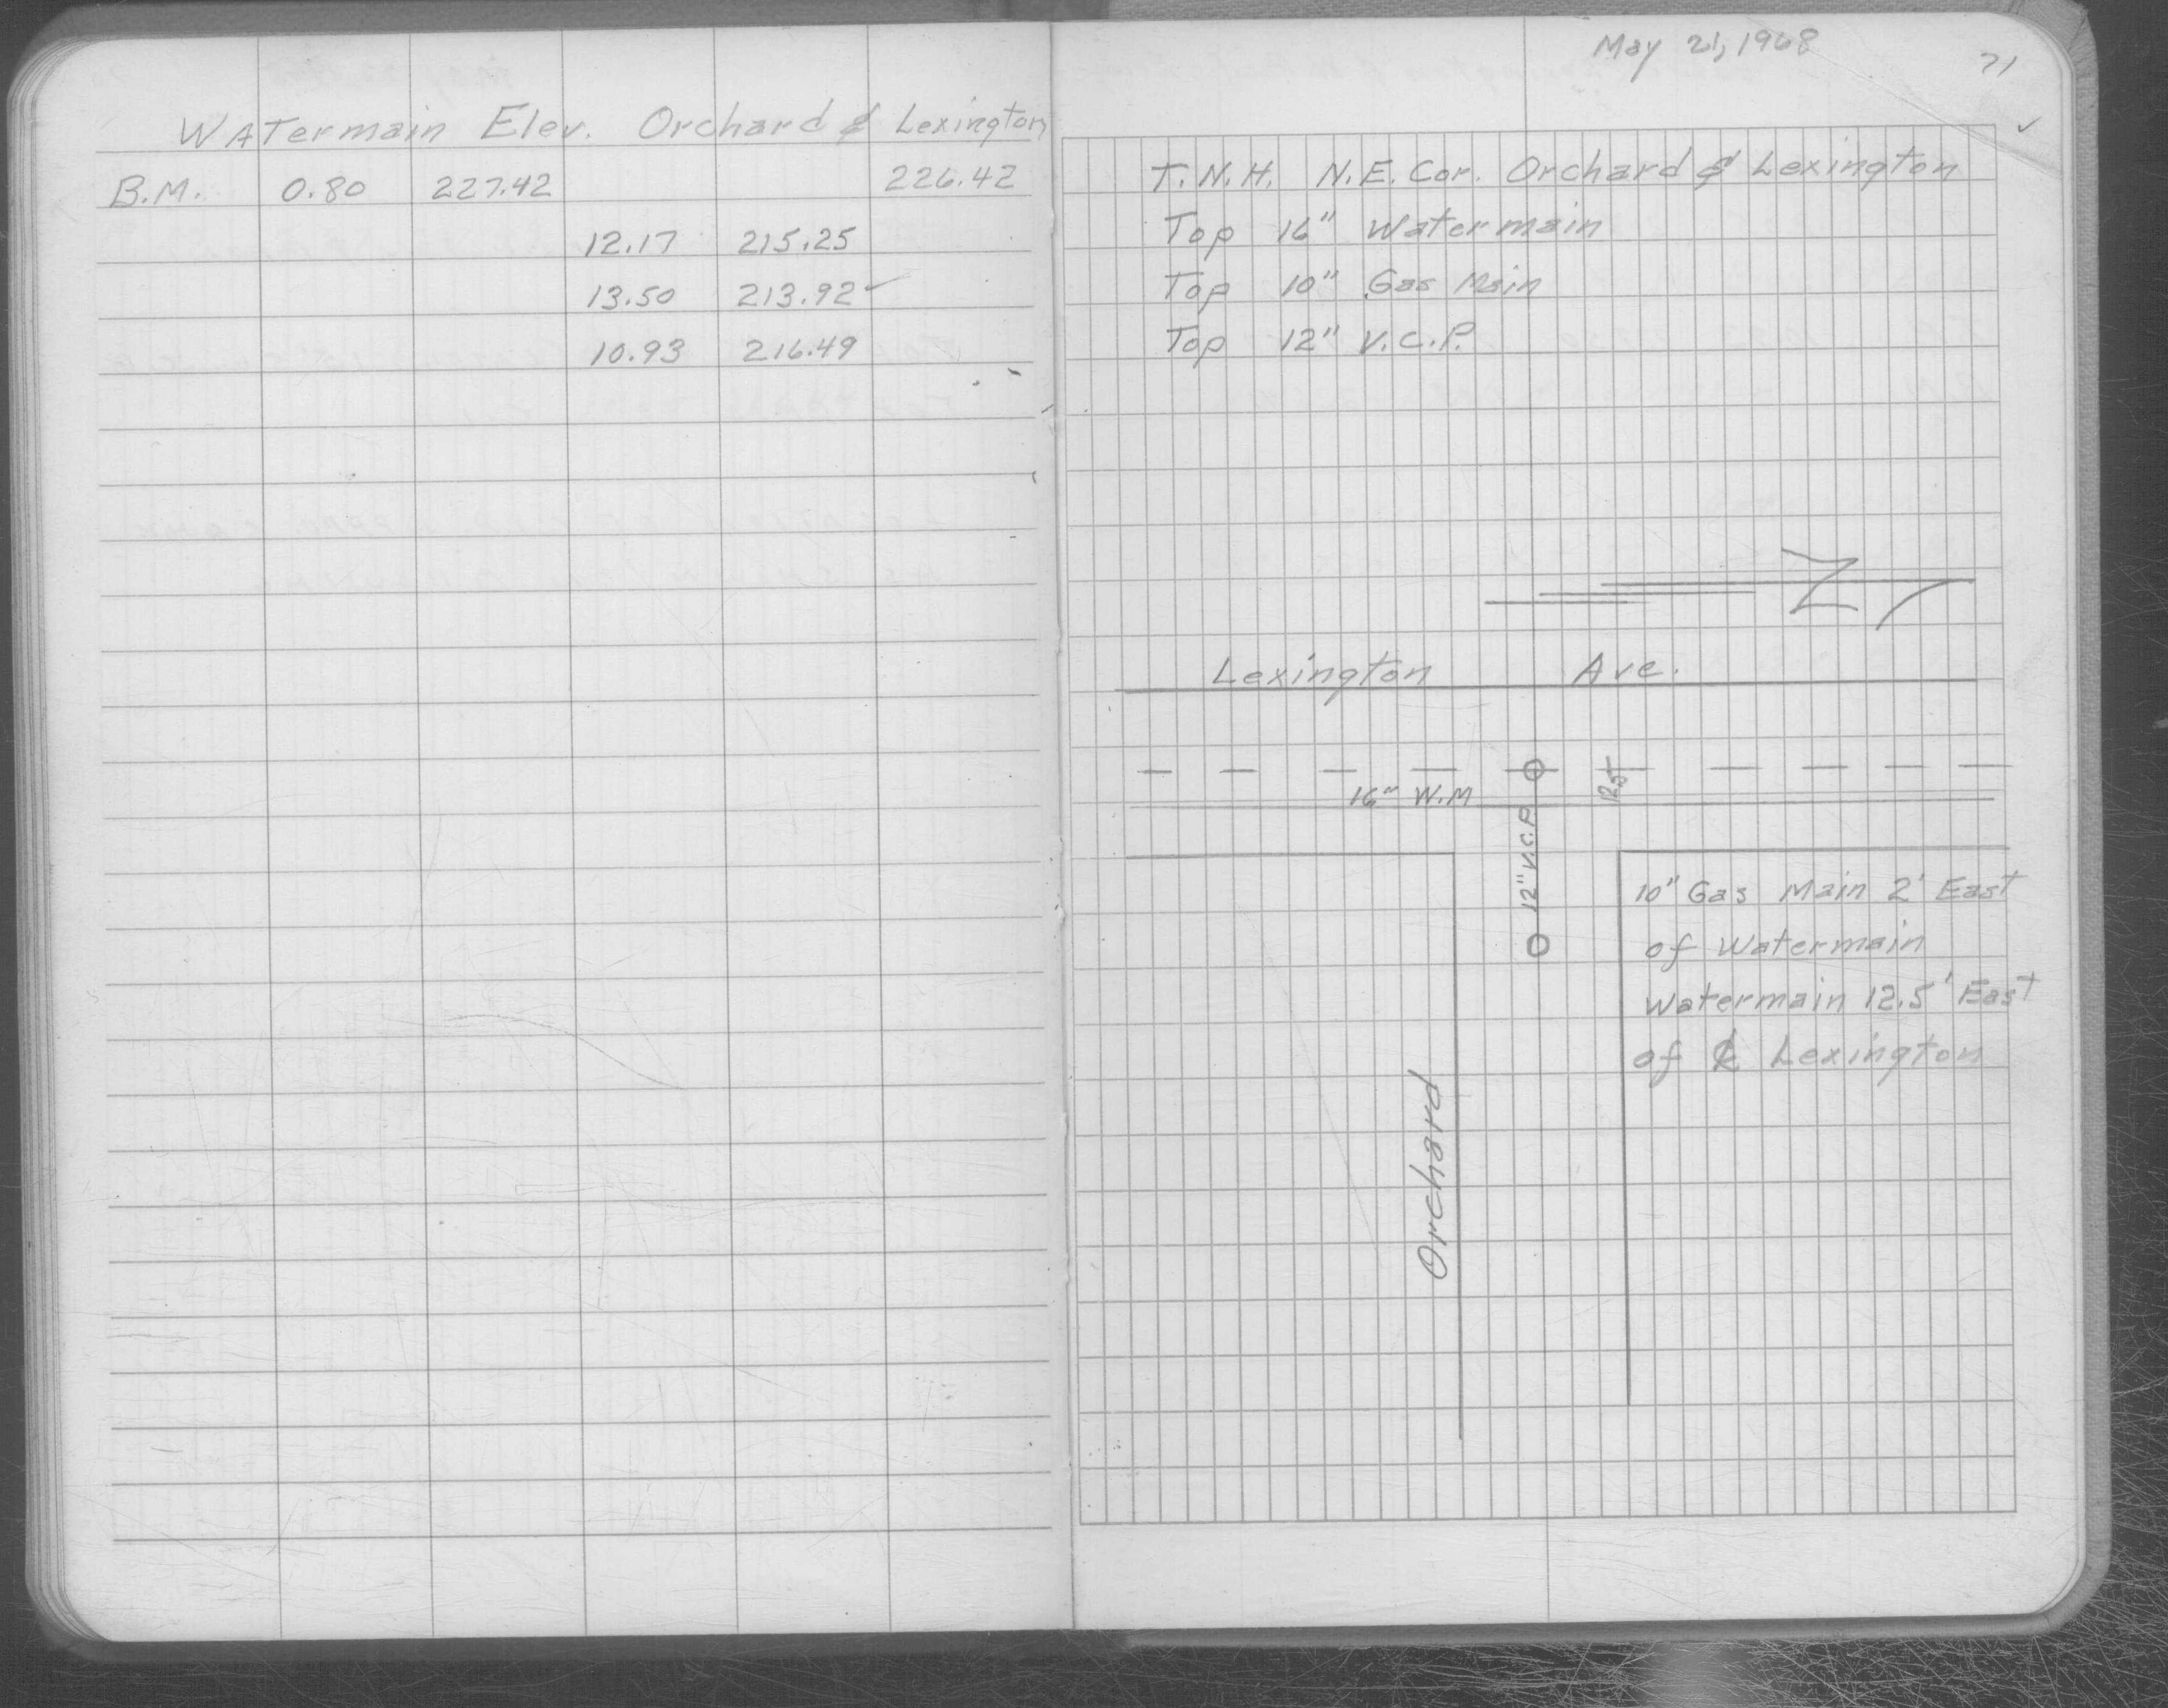 WATermain Elev. Orchard & Lexington
B.M. 0.80 227.42 226.42
12.17 215.25
13.50 213.92 ✓
10.93 216.49
May 21, 1968
71
✓
T.N.H. N.E. Cor. Orchard & Lexington
Top 16" Watermain
Top 10" Gas Main
Top 12" V.C.P.
Lexington Ave.
16" W.M
12.5
12" V.C.P.
10" Gas Main 2' East
of Watermain
Watermain 12.5' East
of ℄ Lexington
Orchard